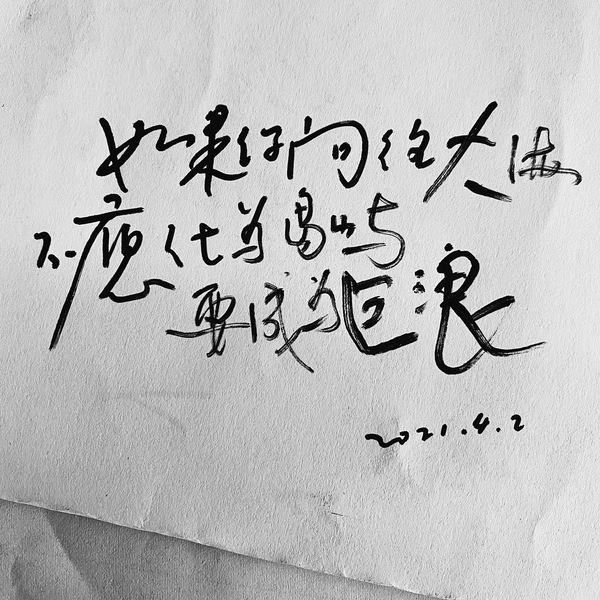 如果你向往大海
不應化为島屿
要成为巨浪
2021.4.2